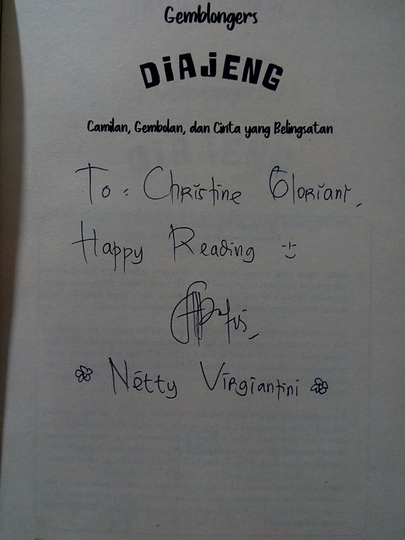 Gemblongers
DIAJENG
Camilan, Gembolan, dan Cinta yang Belingsatan
To : Christine Gloriani,
Happy Reading :)
Netty Virgiantini